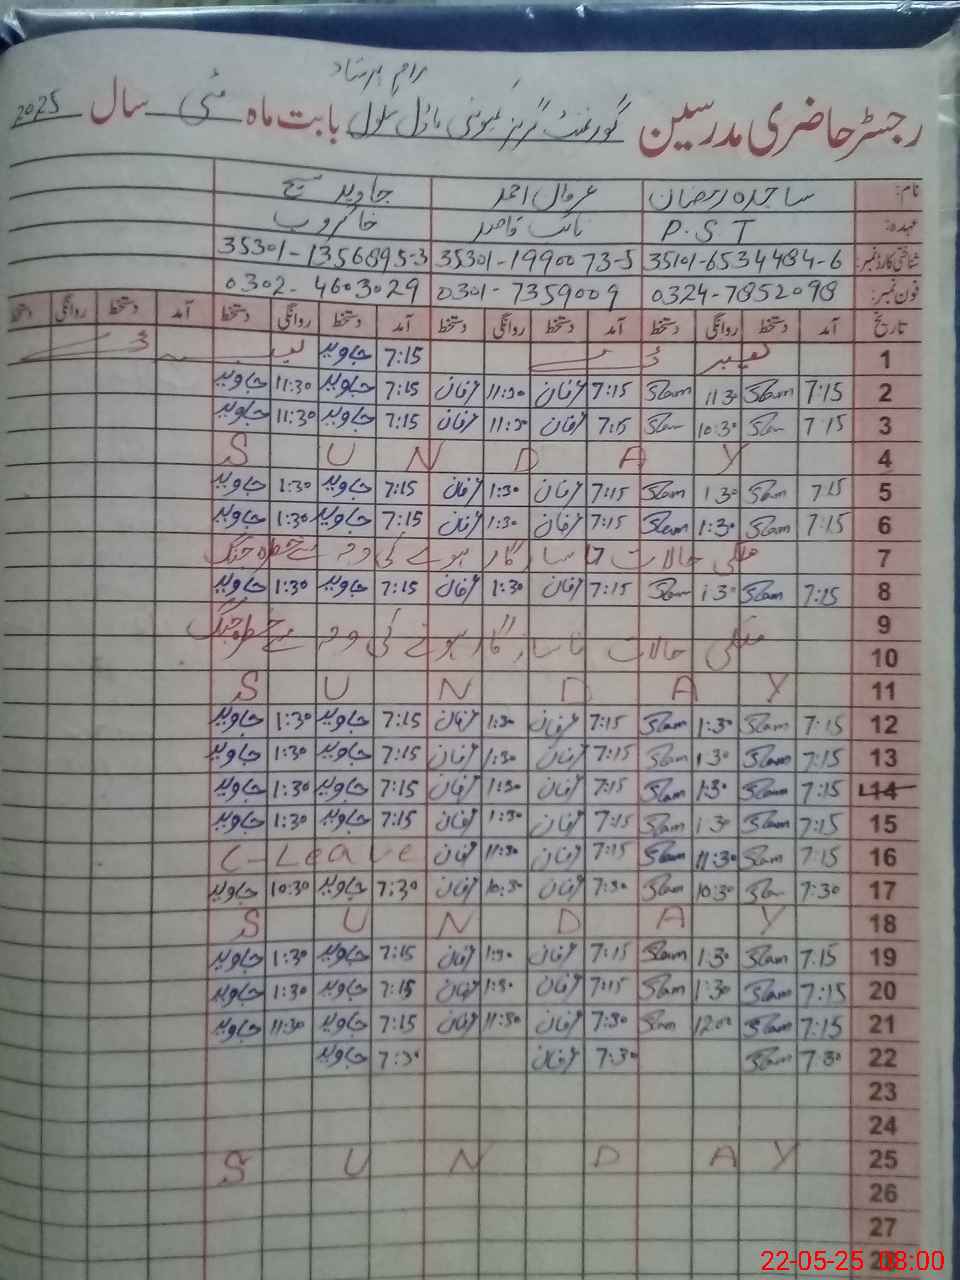 رام پرشاد
رجسٹر حاضری مدرسین گورنمنٹ گرلز کمیونٹی ماڈل سکول بابت ماہ مئی سال 2025
نام: ساجدہ رمضان عرفان احمد جاوید مسیح
عہدہ: P.S.T نائب قاصد خاکروب
شناختی کارڈ نمبر: 35101-6534484-6 35301-1990073-5 35301-1356895-3
فون نمبر: 0324-7852098 0301-7359009 0302-4603029
تاریخ آمد دستخط روانگی دستخط آمد دستخط روانگی دستخط آمد دستخط روانگی دستخط آمد دستخط روانگی دستخط
1 لیبر ڈے 7:15 جاوید لیبر ڈے
2 7:15 Slam 11:30 Slam 7:15 عرفان 11:30 عرفان 7:15 جاوید 11:30 جاوید
3 7:15 Slam 10:30 Slam 7:15 عرفان 11:30 عرفان 7:15 جاوید 11:30 جاوید
4 S U N D A Y
5 7:15 Slam 1:30 Slam 7:15 عرفان 1:30 عرفان 7:15 جاوید 1:30 جاوید
6 7:15 Slam 1:30 Slam 7:15 عرفان 1:30 عرفان 7:15 جاوید 1:30 جاوید
7 ملکی حالات نا سازگار ہونے کی وجہ سے خطرہ جنگ
8 7:15 Slam 1:30 Slam 7:15 عرفان 1:30 عرفان 7:15 جاوید 1:30 جاوید
9
10 ملکی حالات نا سازگار ہونے کی وجہ سے خطرہ جنگ
11 S U N D A Y
12 7:15 Slam 1:30 Slam 7:15 عرفان 1:30 عرفان 7:15 جاوید 1:30 جاوید
13 7:15 Slam 1:30 Slam 7:15 عرفان 1:30 عرفان 7:15 جاوید 1:30 جاوید
14 7:15 Slam 1:30 Slam 7:15 عرفان 1:30 عرفان 7:15 جاوید 1:30 جاوید
15 7:15 Slam 1:30 Slam 7:15 عرفان 1:30 عرفان 7:15 جاوید 1:30 جاوید
16 7:15 Slam 11:30 Slam 7:15 عرفان 11:30 عرفان C-Leave
17 7:30 Slam 10:30 Slam 7:30 عرفان 10:30 عرفان 7:30 جاوید 10:30 جاوید
18 S U N D A Y
19 7:15 Slam 1:30 Slam 7:15 عرفان 1:30 عرفان 7:15 جاوید 1:30 جاوید
20 7:15 Slam 1:30 Slam 7:15 عرفان 1:30 عرفان 7:15 جاوید 1:30 جاوید
21 7:15 Slam 12:00 Slam 7:30 عرفان 11:30 عرفان 7:15 جاوید 11:30 جاوید
22 7:30 Slam 7:30 عرفان 7:30 جاوید
23
24
25 S U N D A Y
26
27
28
22-05-25 08:00